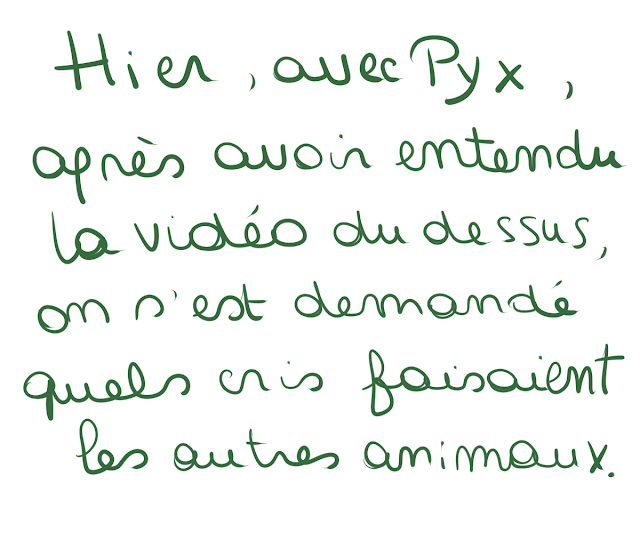 Hier, avec Pyx,
après avoir entendu
la vidéo du dessus,
on s'est demandé
quels cris faisaient
les autres animaux.